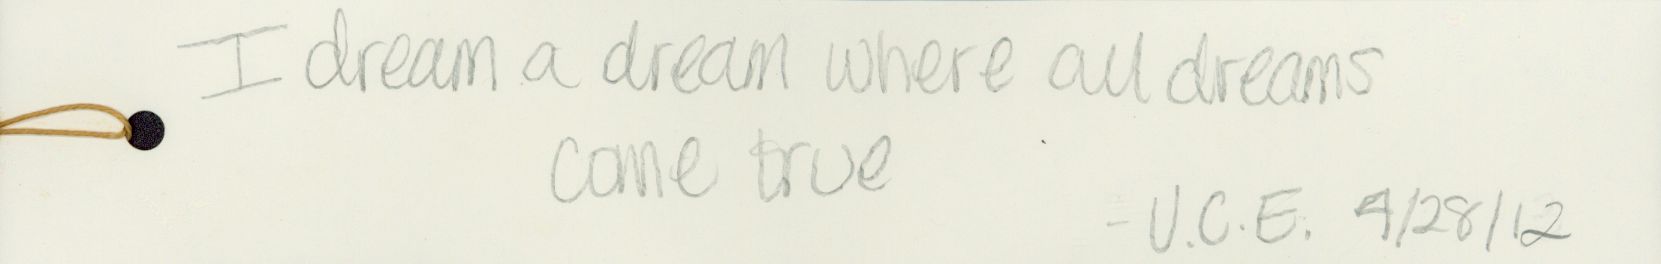 I dream a dream where all dreams
come true
- V.C.E. 4/28/12